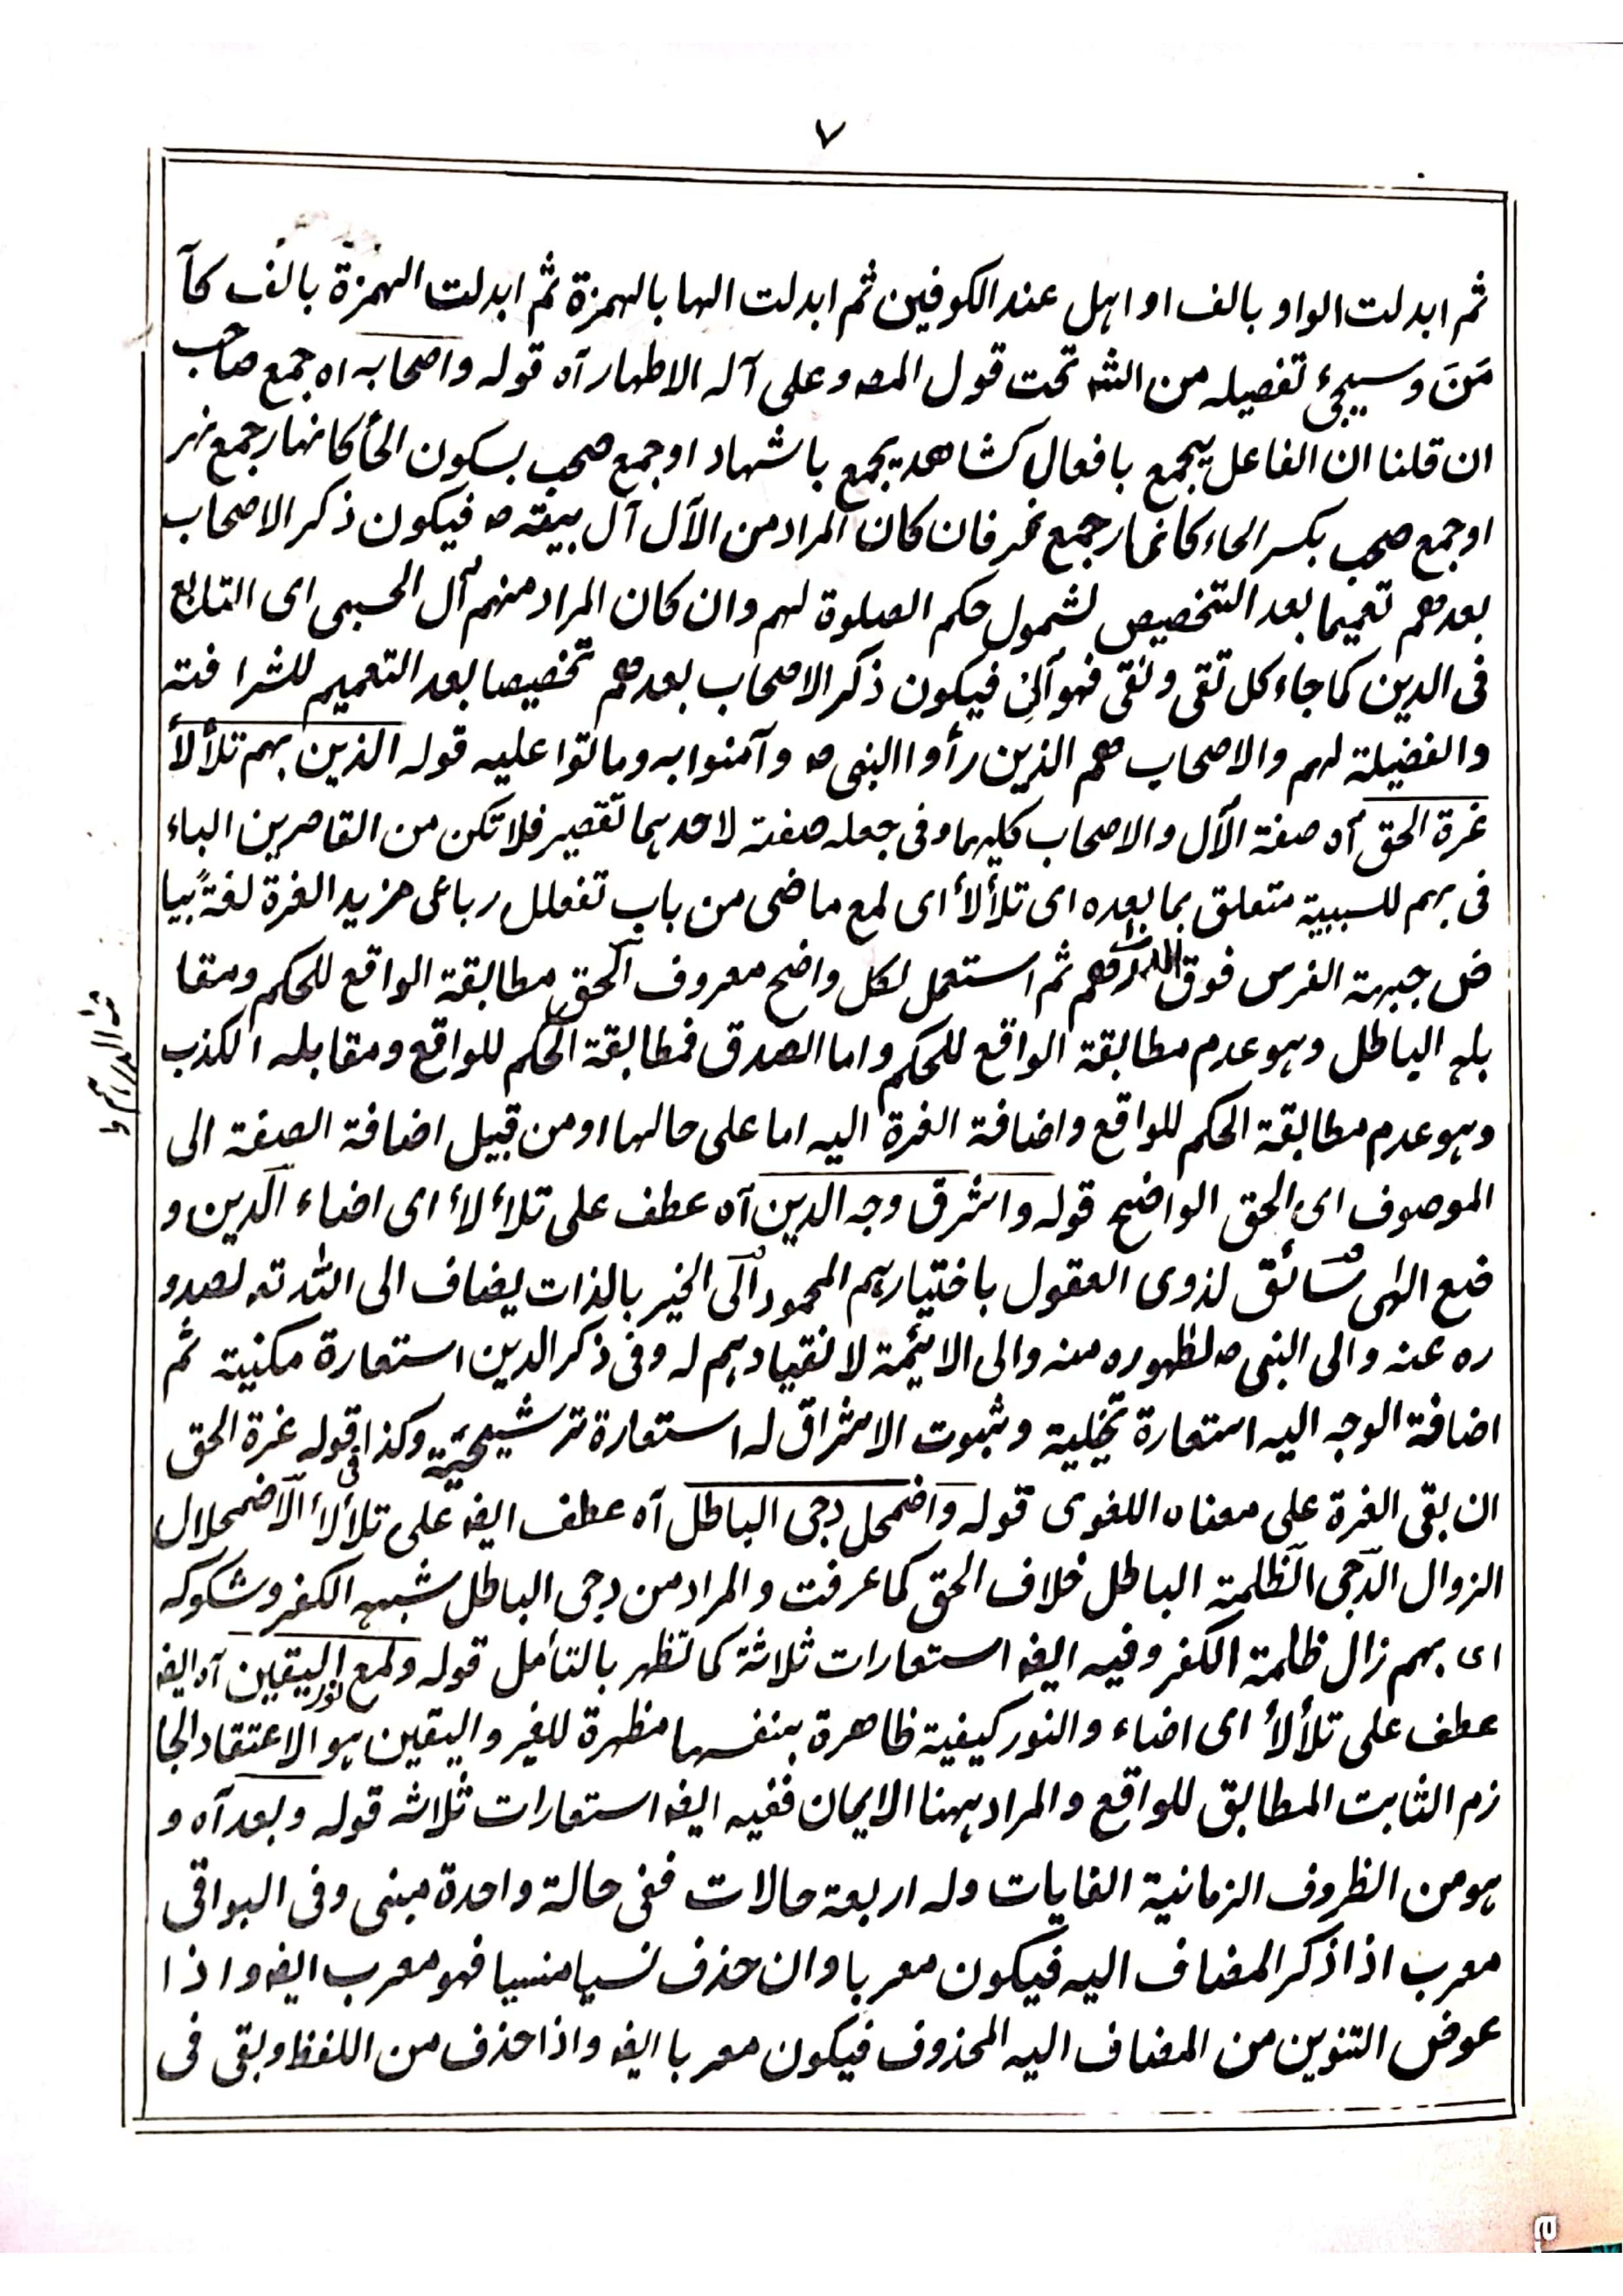 ٧
ثم ابدلت الواو بالف او اهل عند الكوفين ثم ابدلت الها بالهمزة ثم ابدلت الهمزة بالف كآ
مَنَ وسيجئ تفصيله من الشه تحت قول المصه وعلى آله الاطهار آه قوله واصحابه اه جمع صاحب
ان قلنا ان الفاعل يجمع بافعال كشاهد يجمع باشهاد او جمع صحب بسكون الحأ كانهار جمع نهر
او جمع صحب بكسر الحاء كانمار جمع نمر فان كان المراد من الآل آل بيته صه فيكون ذكر الاصحاب
بعدهم تعميما بعد التخصيص لشمول حكم الصلوة لهم وان كان المراد منهم آل الحسبى اى التابع
فى الدين كما جاء كل تقى ونقى فهو آلى فيكون ذكر الاصحاب بعدهم تخصيصا بعد التعميم للشرافته
والفضيلة لهم والاصحاب هم الذين رأوا النبى صه وآمنوا به وماتوا عليه قوله الذين بهم تلألأ
غرة الحق آه صفة الآل والاصحاب كليهما وفى جعله صفة لاحدهما تقصير فلا تكن من القاصرين الباء
فى بهم للسببية متعلق بما بعده اى تلألأ اى لمع ماضى من باب تفعلل رباعى مزيد الغرة لغةً بيا
ض جبهة الفرس فوق الدرهم ثم استعمل لكل واضح معروف الحق مطابقة الواقع للحكم ومقا
بله الباطل وهو عدم مطابقة الواقع للحكم واما الصدق فمطابقة الحكم للواقع ومقابله الكذب
وهو عدم مطابقة الحكم للواقع واضافة الغرة اليه اما على حالها او من قبيل اضافة الصفة الى
الموصوف اى الحق الواضح قوله واشرق وجه الدين آه عطف على تلألأ اى اضاء الدين و
ضع الهى سائق لذوى العقول باختيارهم المحمود الى الخير بالذات يضاف الى الله تعه لصدو
ره عنه والى النبى صه لظهوره منه والى الايئمة لانقيادهم له وفى ذكر الدين استعارة مكنية ثم
اضافة الوجه اليه استعارة تخيلية وثبوت الاشراق له استعارة ترشيحية وكذا فى قوله غرة الحق
ان بقى الغرة على معناه اللغوى قوله واضمحل دجى الباطل آه عطف ايضه على تلألأ الاضمحلال
الزوال الدجى الظلمة الباطل خلاف الحق كما عرفت والمراد من دجى الباطل شبه الكفر وشكوكه
اى بهم زال ظلمة الكفر وفيه ايضه استعارات ثلاثة كما تظهر بالتأمل قوله ولمع نور اليقين آه ايضه
عطف على تلألأ اى اضاء والنور كيفية ظاهرة بنفسها مظهرة للغير واليقين هو الاعتقاد الجا
زم الثابت المطابق للواقع والمراد ههنا الايمان ففيه ايضه استعارات ثلاثه قوله وبعد آه و
هو من الظروف الزمانية الغايات وله اربعة حالات ففى حالة واحدة مبنى وفى البواقى
معرب اذا ذكر المضاف اليه فيكون معربا وان حذف نسيا منسيا فهو معرب ايضه واذا
عوض التنوين من المضاف اليه المحذوف فيكون معربا ايضه واذا حذف من اللفظ وبقى فى